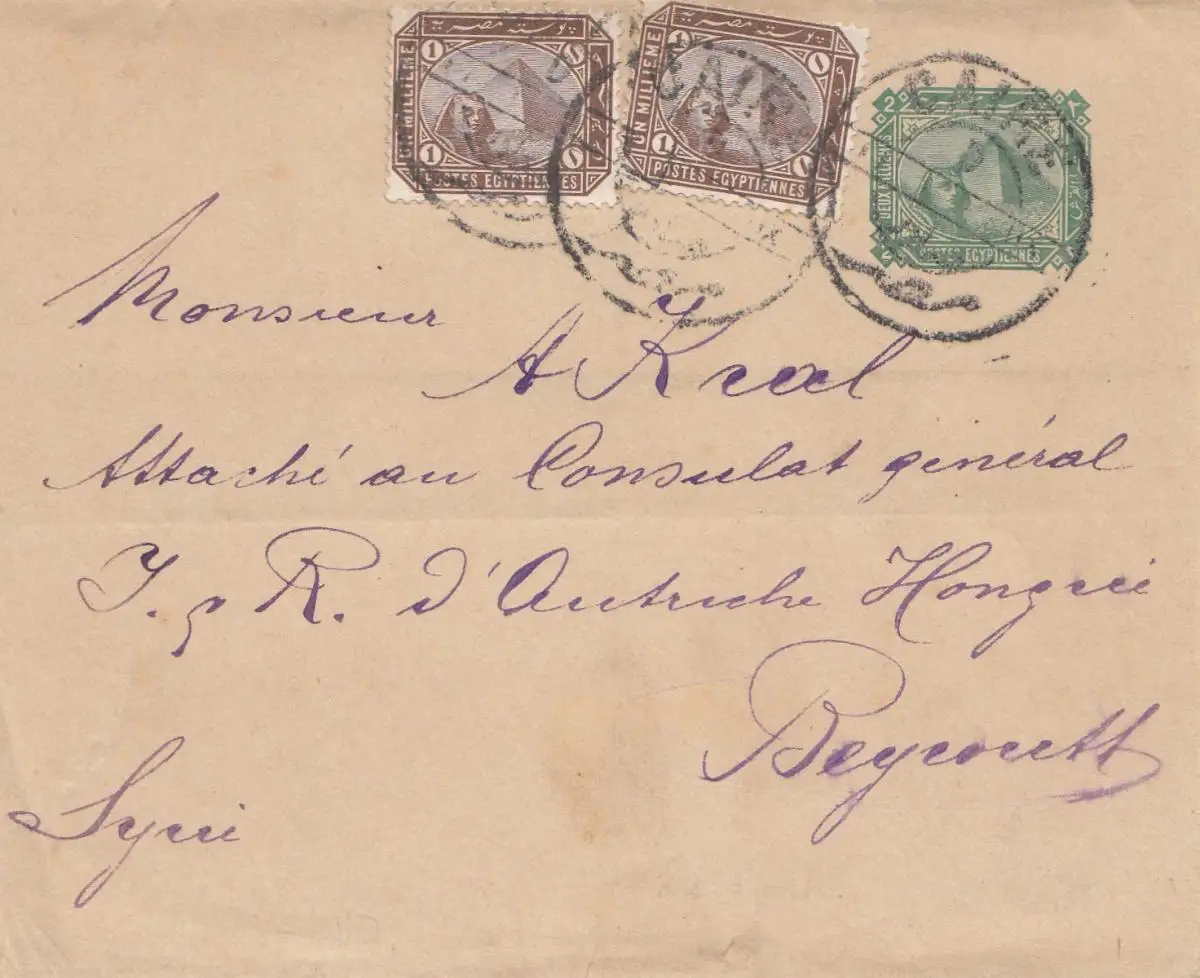 بوستة مصرية
UN MILLIEME
1 ١
1 ١
POSTES EGYPTIENNES
بوستة مصرية
UN MILLIEME
1 ١
1 ١
POSTES EGYPTIENNES
CAIR
2 ٢
DEUX MILLIEMES
2
POSTES EGYPTIENNES
CAIRE
Monsieur
A Kral
Attaché au Consulat général
I. & R. d'Autriche Hongrie
Beyrouth
Syrie